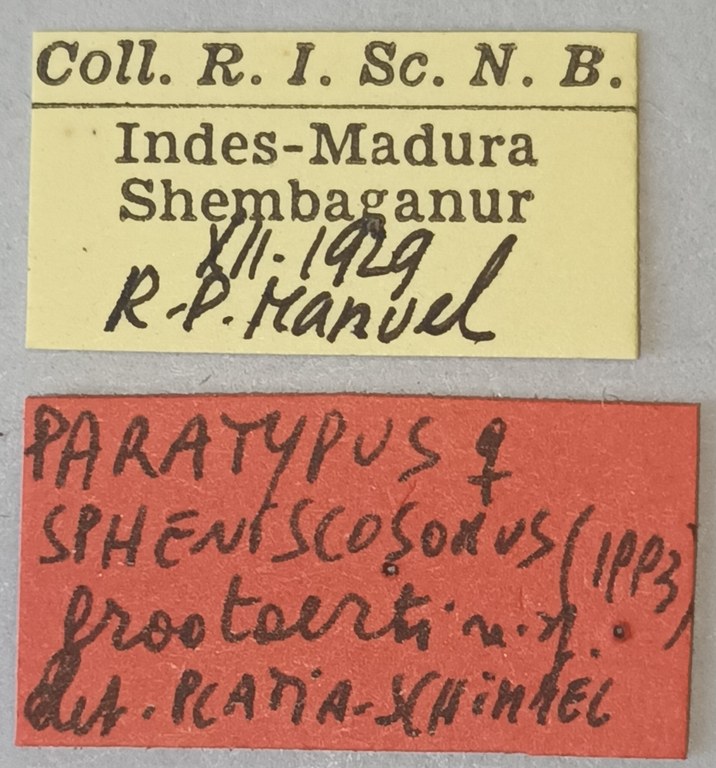 Coll. R. I. Sc. N. B.
Indes-Madura
Shembaganur
XII.1929
R.P. Manuel
PARATYPUS ♀
SPHENISCOSOMUS (1993)
grootaerti n.sp.
det. PLATIA-SCHIMMEL